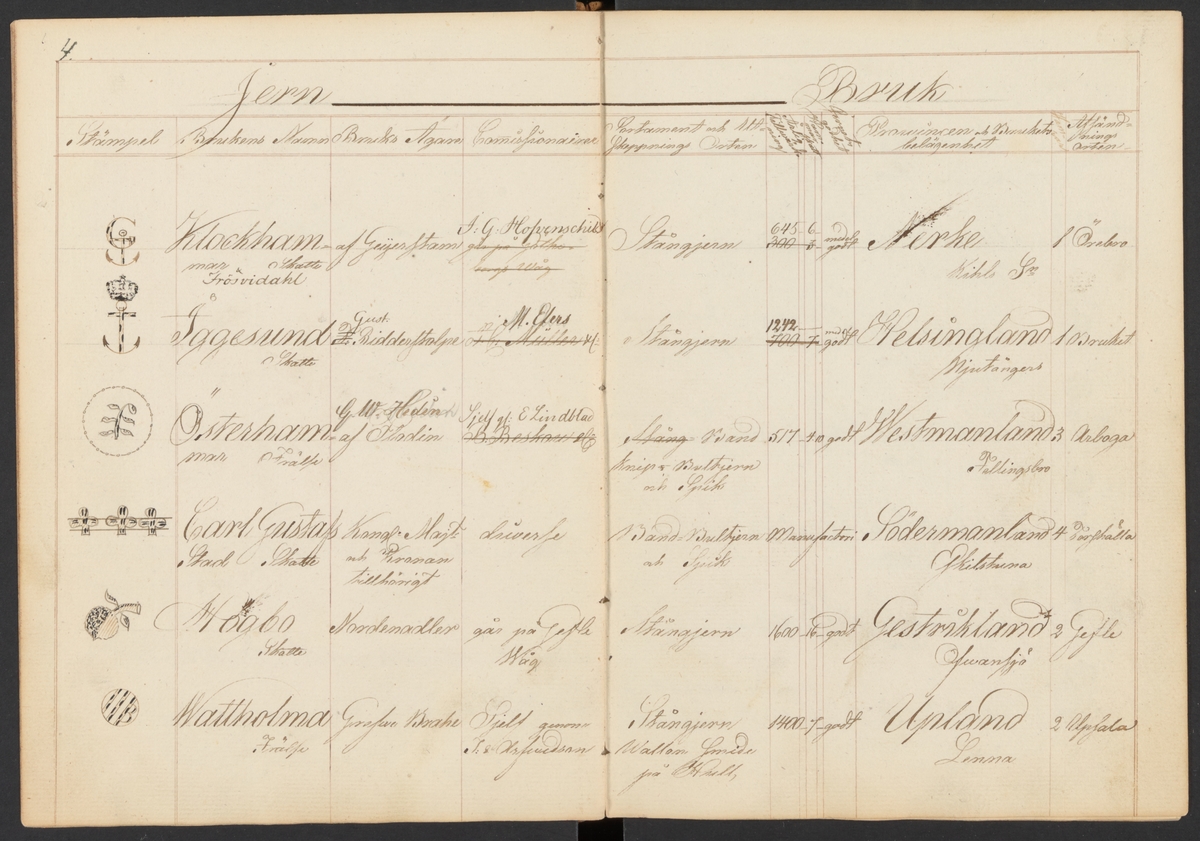 4.
Jern Bruk
Stämpel Brukens Namn Bruks Ägare Comissionairer Sortament och Uts- Provinsen och Brukets Afsänd-
skeppnings Orten belägenhet nings
orten
J. G. Hopenschild 645 6
Klockham- af Geijerstam Stångjern 300 godt Nerke 1 Örebro
mar Skatte Kihls Sn
Frösvidahl Wåg
Gust: M. Elfers 1242
Iggesund Ridderstolpe Müller Stångjern 700 7 godt Helsingland 1 Bruket
Skatte Njutångers
G. W. Hedin Sjelf gl: E Lindblad
Österham- af Stadin B Beskow Stång Band 517 10 godt Westmanland 3 Arboga
mar Frälse Knip- Bultjern Fellingsbro
och Spik
Carl Gustafs Kongl. Majt diverse Band Bultjern Manufactori Södermanland 4 Torshälla
Stad Skatte och Kronan och Spik Eskilstuna
tillhörigt
Högbo Nordenadler går på Gefle Stångjern 1600 16 godt Gestrikland 2 Gefle
Skatte Wåg Ofvansjö
Wattholma Grefve Brahe Sjelf genom Stångjern 1400 7 godt Upland 2 Upsala
Frälse Arfwidson Wallon Smide Lenna
på